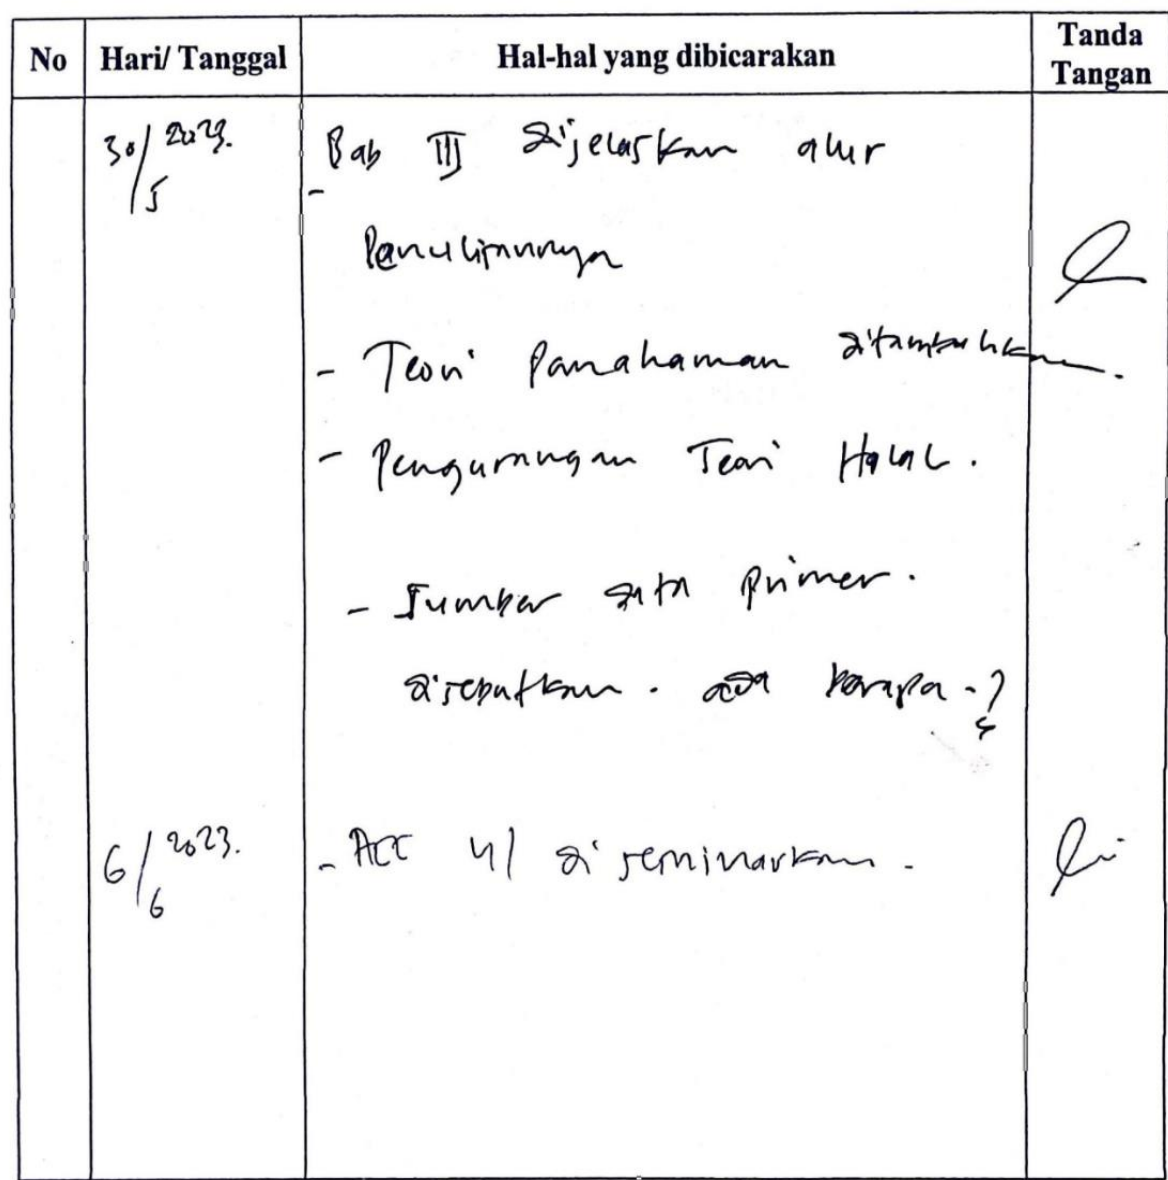 No Hari/ Tanggal Hal-hal yang dibicarakan Tanda Tangan
30/5 2023. - Bab III dijelaskan alur
Penulisannya
- Teori Pamahaman ditambahkan.
- Pengurangan Teori Halal.
- Sumber data primer.
disebutkan. ada berapa.?
6/6 2023. - ACC u/ di seminarkan.